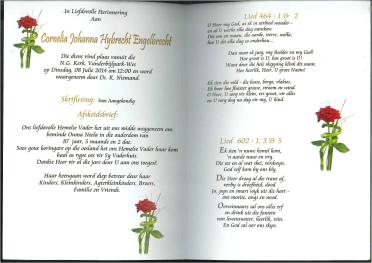 In Liefdevolle Herinnering
Aan
Cornelia Johanna Hybrecht Engelbrecht
Die diens vind plaas vanuit die
N.G. Kerk, Vanderbijlpark-Wes
op Dinsdag, 08 Julie 2014 om 12:00 en word
waargeneem deur Ds. K. Niemand.
Skriflesing: Soos Aangekondig
Afskeidsbrief:
Ons liefdevolle Hemelse Vader het uit ons midde weggeneem ons
beminde Ouma Neela in die ouderdom van
87 jaar, 5 maande en 2 dae.
Soos goue koringare op die oesland het ons Hemelse Vader haar kom
haal as rype oes vir Sy Vaderhuis.
Dankie Heer vir al die jare deur U aan ons vergeet.
Haar heengaan word diep betreur deur haar
Kinders, Kleinkinders, Agterkleinkinders, Broers,
Familie en Vriende.
Lied 464 : 1 & 2
O Heer my God, as ek in eerbied wonder -
en al U werke elke dag aanskou:
Die son en maan, die aarde, sterre, wolke,
hoe U dit elke dag so onderhou...
Dan moet ek juig, my Redder en my God!
Hoe groot is U, hoe groot is U!
Want deur die hele skepping klink dit saam:
Hoe heerlik, Heer, U grote Naam!
Ek sien die wild - die bome, berge, vlaktes,
Ek hoor hoe fluister grasse, stroom en wind.
O Heer, U sorg vir klein, vir groot, vir alles
en U sorg dag na dag vir my, U kind.
Lied 602 : 1, 3 & 5
Ek sien 'n nuwe hemel kom,
'n aarde nuut en vry.
Die see en al wat skei, verdwyn,
God self kom by ons bly.
Die Heer droog al die trane af,
verby is droefheid, dood.
Ja, pyn en smart wyk uit die hart -
ons moeite, angs en nood.
Oorwinnaars sal ons alles erf
en drink uit die fontein
van lewenswater, heerlik, rein.
En God sal oor ons skyn.